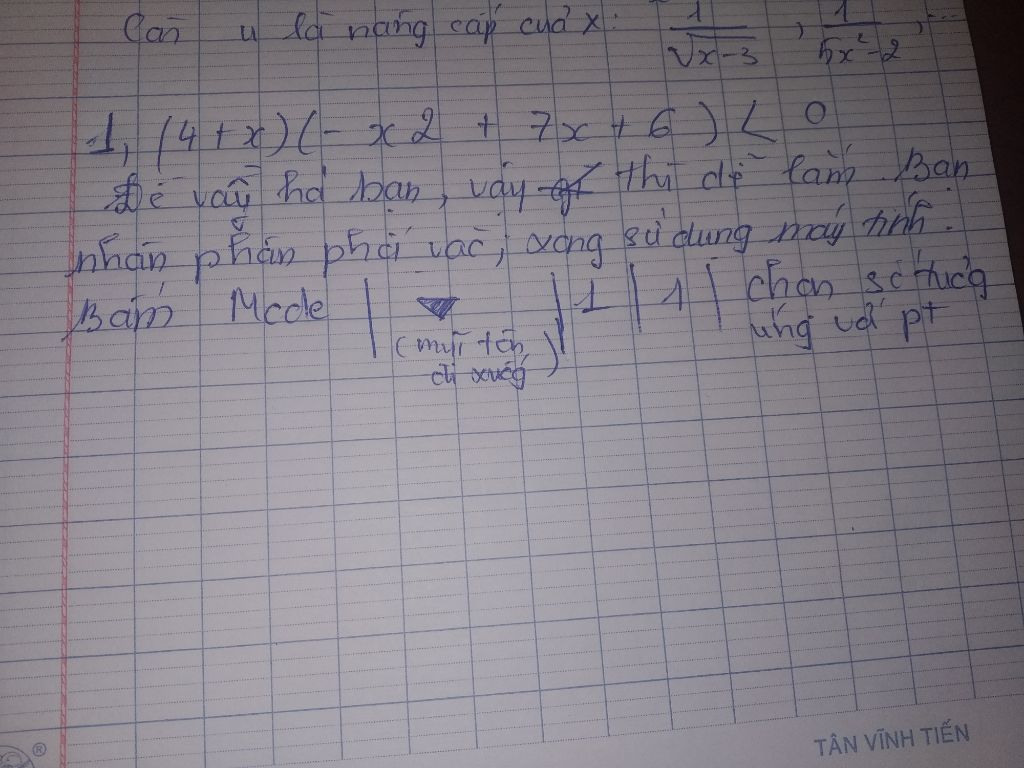 Còn u là nâng cấp của x: 1/√x-3, 1/5x²-2, ...
1, (4+x)(- x2 + 7x + 6) < 0
Dễ vậy hả bạn, vậy thì dễ lắm Bạn
nhân phân phối vào, xong sử dụng máy tính.
Bấm Mode | ▼ | 1 | 1 | chọn số tương
(mũi tên ứng với pt
đi xuống)
TÂN VĨNH TIẾN
®